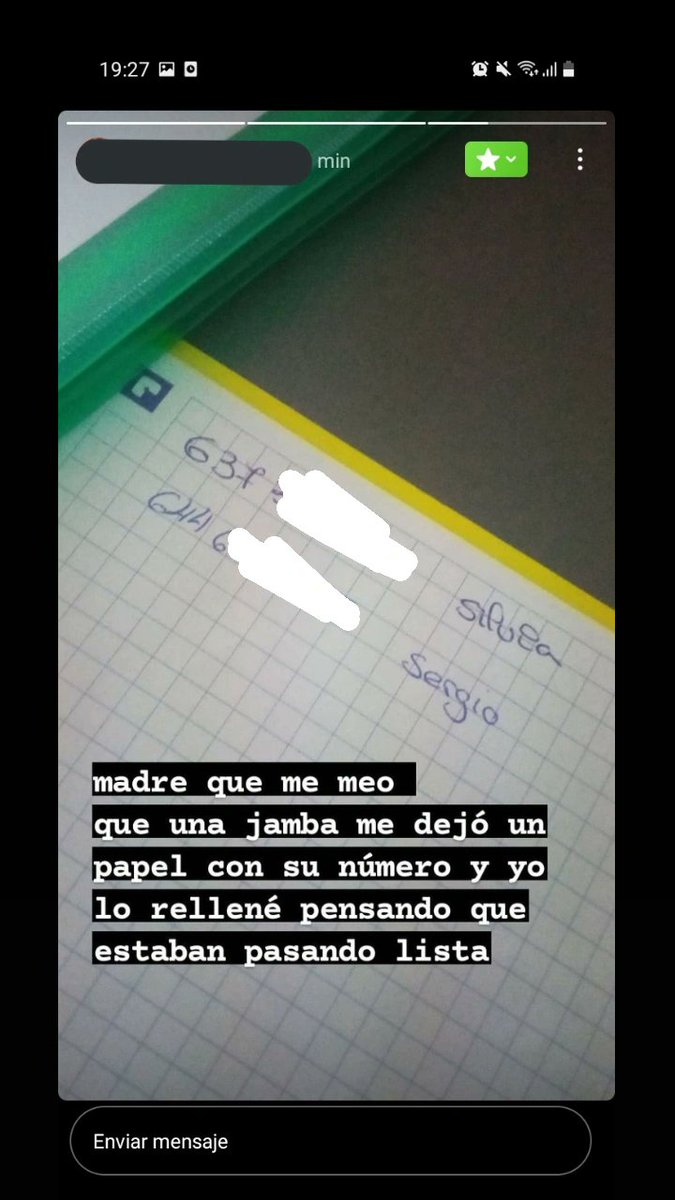 19:27
min
637
644 6
Silvia
Sergio
madre que me meo
que una jamba me dejó un
papel con su número y yo
lo rellené pensando que
estaban pasando lista
Enviar mensaje